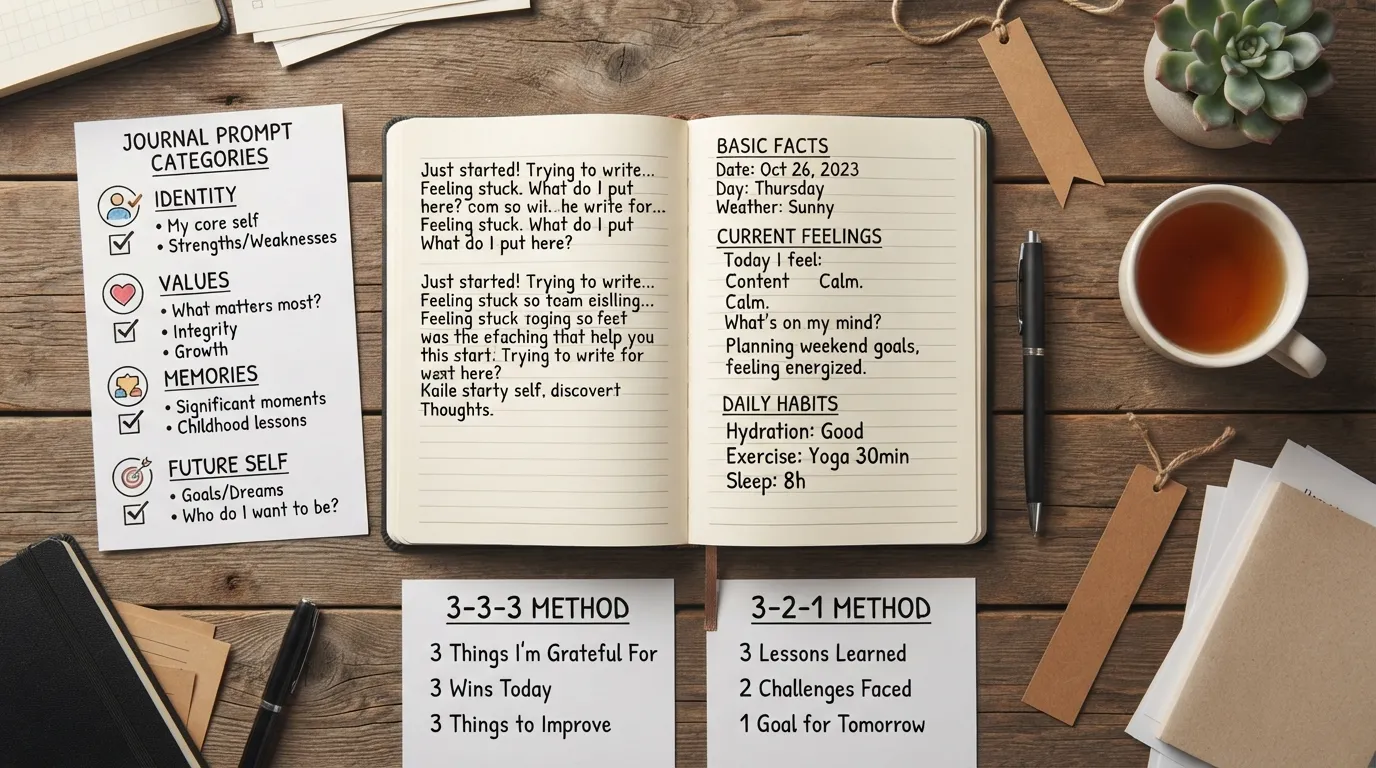 JOURNAL PROMPT
CATEGORIES
IDENTITY
• My core self
• Strengths/Weaknesses
VALUES
• What matters most?
• Integrity
• Growth
MEMORIES
• Significant moments
• Childhood lessons
FUTURE SELF
• Goals/Dreams
• Who do I want to be?
Just started! Trying to write...
Feeling stuck. What do I put
here? com so wil... he write for...
Feeling stuck. What do I put
What do I put here?
Just started! Trying to write...
Feeling stuck so team eislling...
Feeling stuck roging so feet
was the efaching that help you
this start. Trying to write for
here?
starty self, discovert
Thoughts.
BASIC FACTS
Date: Oct 26, 2023
Day: Thursday
Weather: Sunny
CURRENT FEELINGS
Today I feel:
Content Calm.
Calm.
What's on my mind?
Planning weekend goals,
feeling energized.
DAILY HABITS
Hydration: Good
Exercise: Yoga 30min
Sleep: 8h
3-3-3 METHOD
3 Things I'm Grateful For
3 Wins Today
3 Things to Improve
3-2-1 METHOD
3 Lessons Learned
2 Challenges Faced
1 Goal for Tomorrow